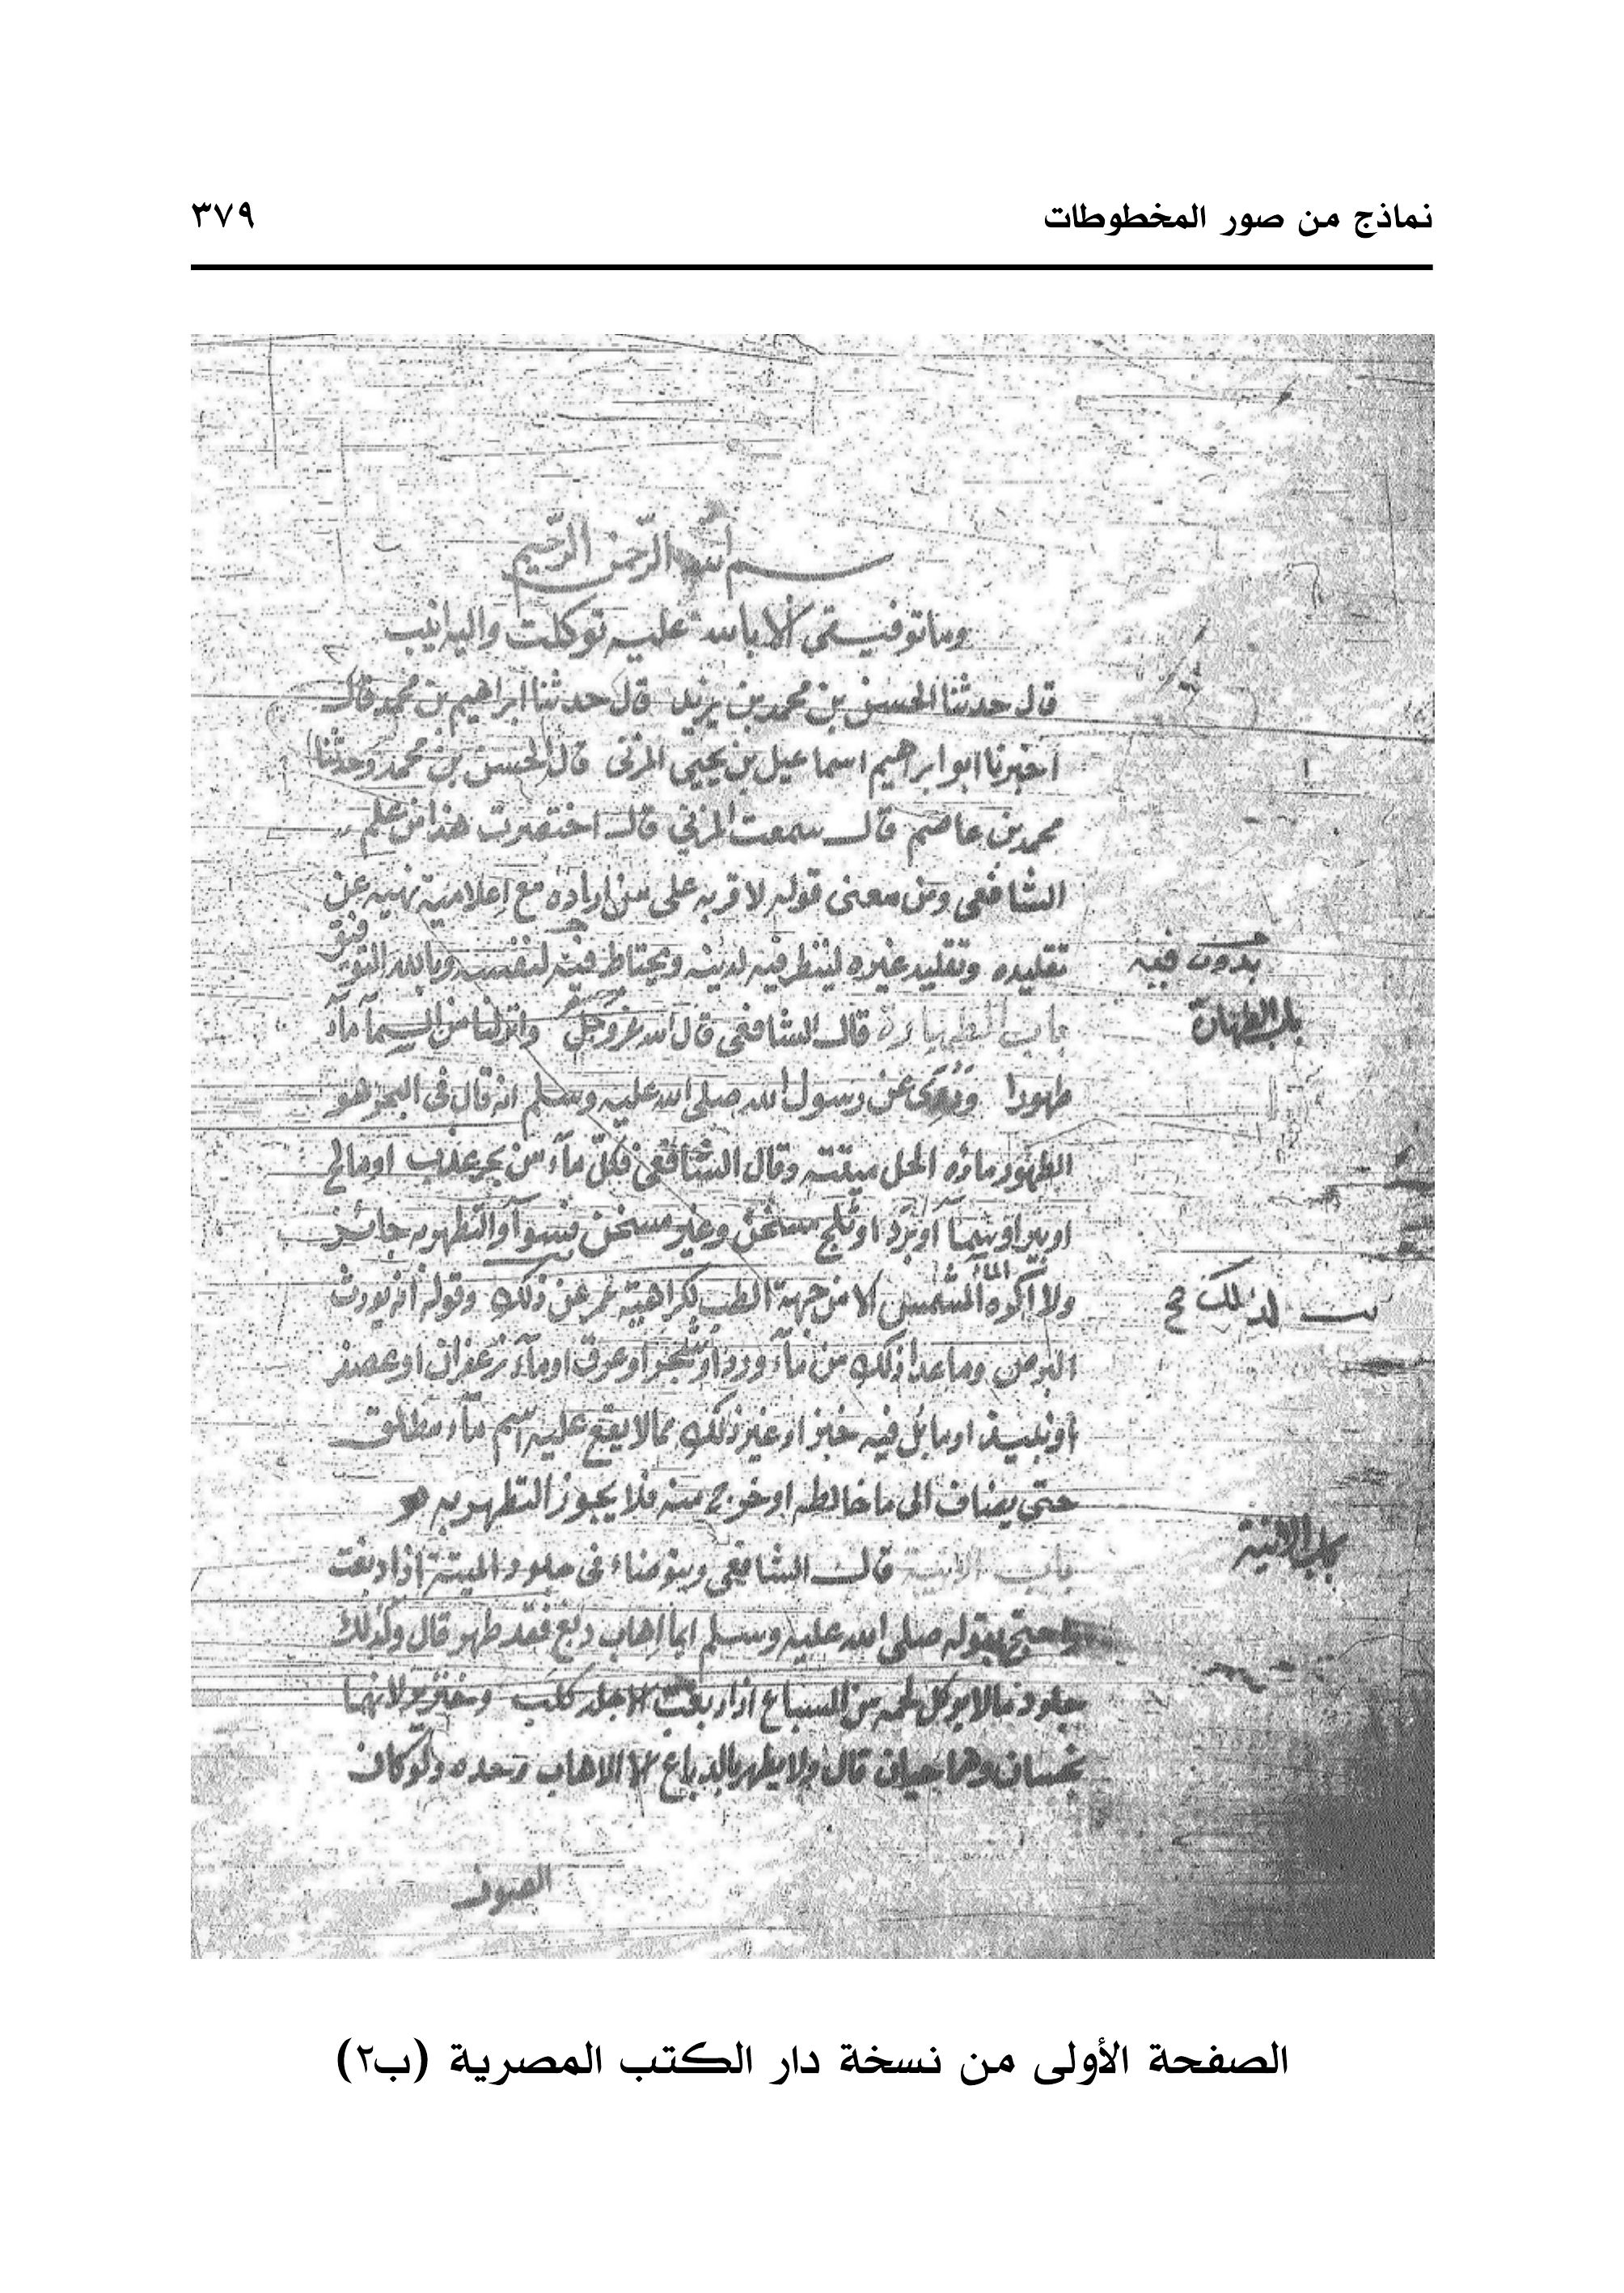 نماذج من صور المخطوطات
٣٧٩
بسم الله الرحمن الرحيم
وما توفيقي الا بالله عليه توكلت واليه انيب
قال حدثنا الحسن بن محمد بن يزيد قال حدثنا ابراهيم بن محمد قال
اخبرنا ابو ابراهيم اسماعيل بن يحيى المزنى قال الحسن بن محمد وحدثنا
محمد بن عاصم قال سمعت المزني قال اختصرت هذا من علم
الشافعي ومن معنى قوله لاقربه على من اراده مع اعلامية نهيه عن
تقليده وتقليد غيره لينظر فيه لدينه ويحتاط فيه لنفسه وبالله التوفيق
بدون فيه
باب الطهارة قال الشافعي قال الله عز وجل وانزلنا من السمآ مآء
باب الطهارة
طهورا وروى عن رسول الله صلى الله عليه وسلم انه قال فى البحر هو
الطهور ماؤه الحل ميتته وقال الشافعي فكل مآء من بحر عذب او مالح
او بير او سمآ او برد او ثلج مسخن وغير مسخن فسوآ والتطهر به جائز
ولا اكره المآء المشمس الا من جهة الطب لكراهية عمر عن ذلك وقوله انه يورث
لذلك صح
البرص وما عدا ذلك من مآء ورد او شجر او عرق او مآء زعفران او عصفر
او نبيذ او ما بل فيه خبز او غير ذلك مما لا يقع عليه اسم مآء مطلق
حتى يضاف الى ما خالطه او خرج منه فلا يجوز التطهر به
باب الانية قال الشافعي ويتوضاء فى جلود الميتة اذا دبغت
باب الانية
واحتج بقوله صلى الله عليه وسلم ايما اهاب دبغ فقد طهر قال وكذلك
جلود ما لا يوكل لحمه من السباع اذا دبغت الا جلد كلب وخنزير لانهما
نجسان وهما حيان قال ولا يطهر بالدباغ الا الاهاب وحده ولو كان
الصوف
الصفحة الأولى من نسخة دار الكتب المصرية (ب٢)